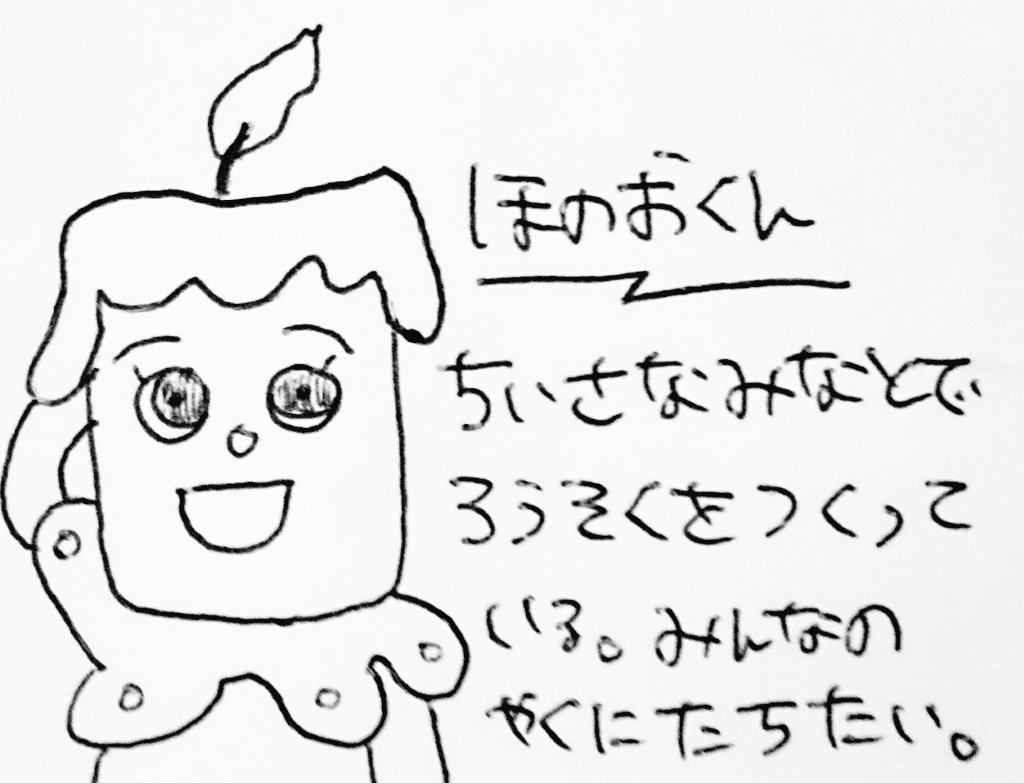 ほのおくん
ちいさなみなとで
ろうそくをつくって
いる。みんなの
やくにたちたい。